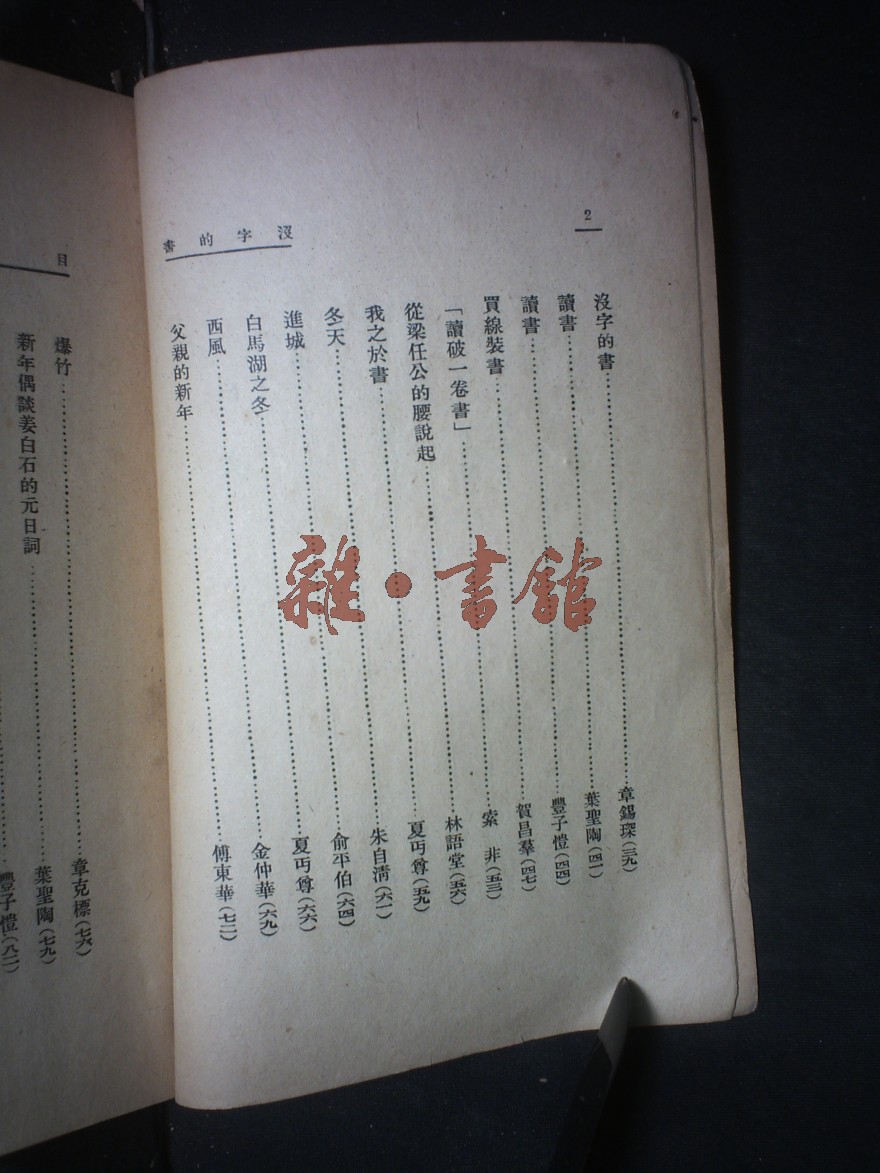 2
沒字的書
沒字的書……章錫琛(三九)
讀書……葉聖陶(四一)
讀書……豐子愷(四四)
買線裝書……賀昌羣(四七)
「讀破一卷書」……索 非(五三)
從梁任公的腰說起……林語堂(五六)
我之於書……夏丏尊(五九)
冬天……朱自清(六一)
進城……俞平伯(六四)
白馬湖之冬……夏丏尊(六六)
西風……金仲華(六九)
父親的新年……傅東華(七二)
目
爆竹……章克標(七六)
新年偶談姜白石的元日詞……葉聖陶(七九)
……豐子愷(八二)
雜·書館